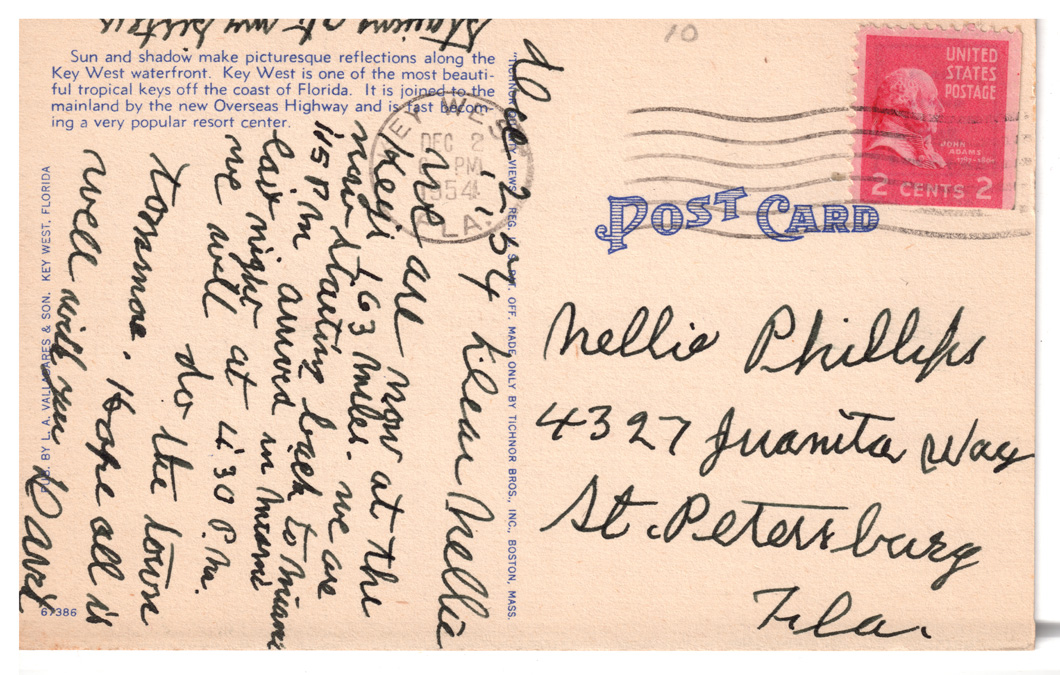 Sun and shadow make picturesque reflections along the
Key West waterfront. Key West is one of the most beauti-
ful tropical keys off the coast of Florida. It is joined to the
mainland by the new Overseas Highway and is fast becom-
ing a very popular resort center.
KEY WEST
DEC 2
PM
1954
FLA.
10
UNITED
STATES
POSTAGE
JOHN
ADAMS
1797-1801
2 CENTS 2
POST CARD
Nellie Phillips
4327 Juanita Way
St. Petersburg
Fla.
Dec 2 '54
Dear Nellie
We are now at the
Keys 163 miles. we are
now starting back to Miami
115 P m arrived in Miami
last night
we will at 4:30 P.M.
do the town
tomorrow. Hope all is
well with you
staying at my sisters
PUB. BY L. A. VALLADARES & SON. KEY WEST, FLORIDA
"TICHNOR QUALITY VIEWS," REG. U. S. PAT. OFF. MADE ONLY BY TICHNOR BROS., INC., BOSTON, MASS.
67386